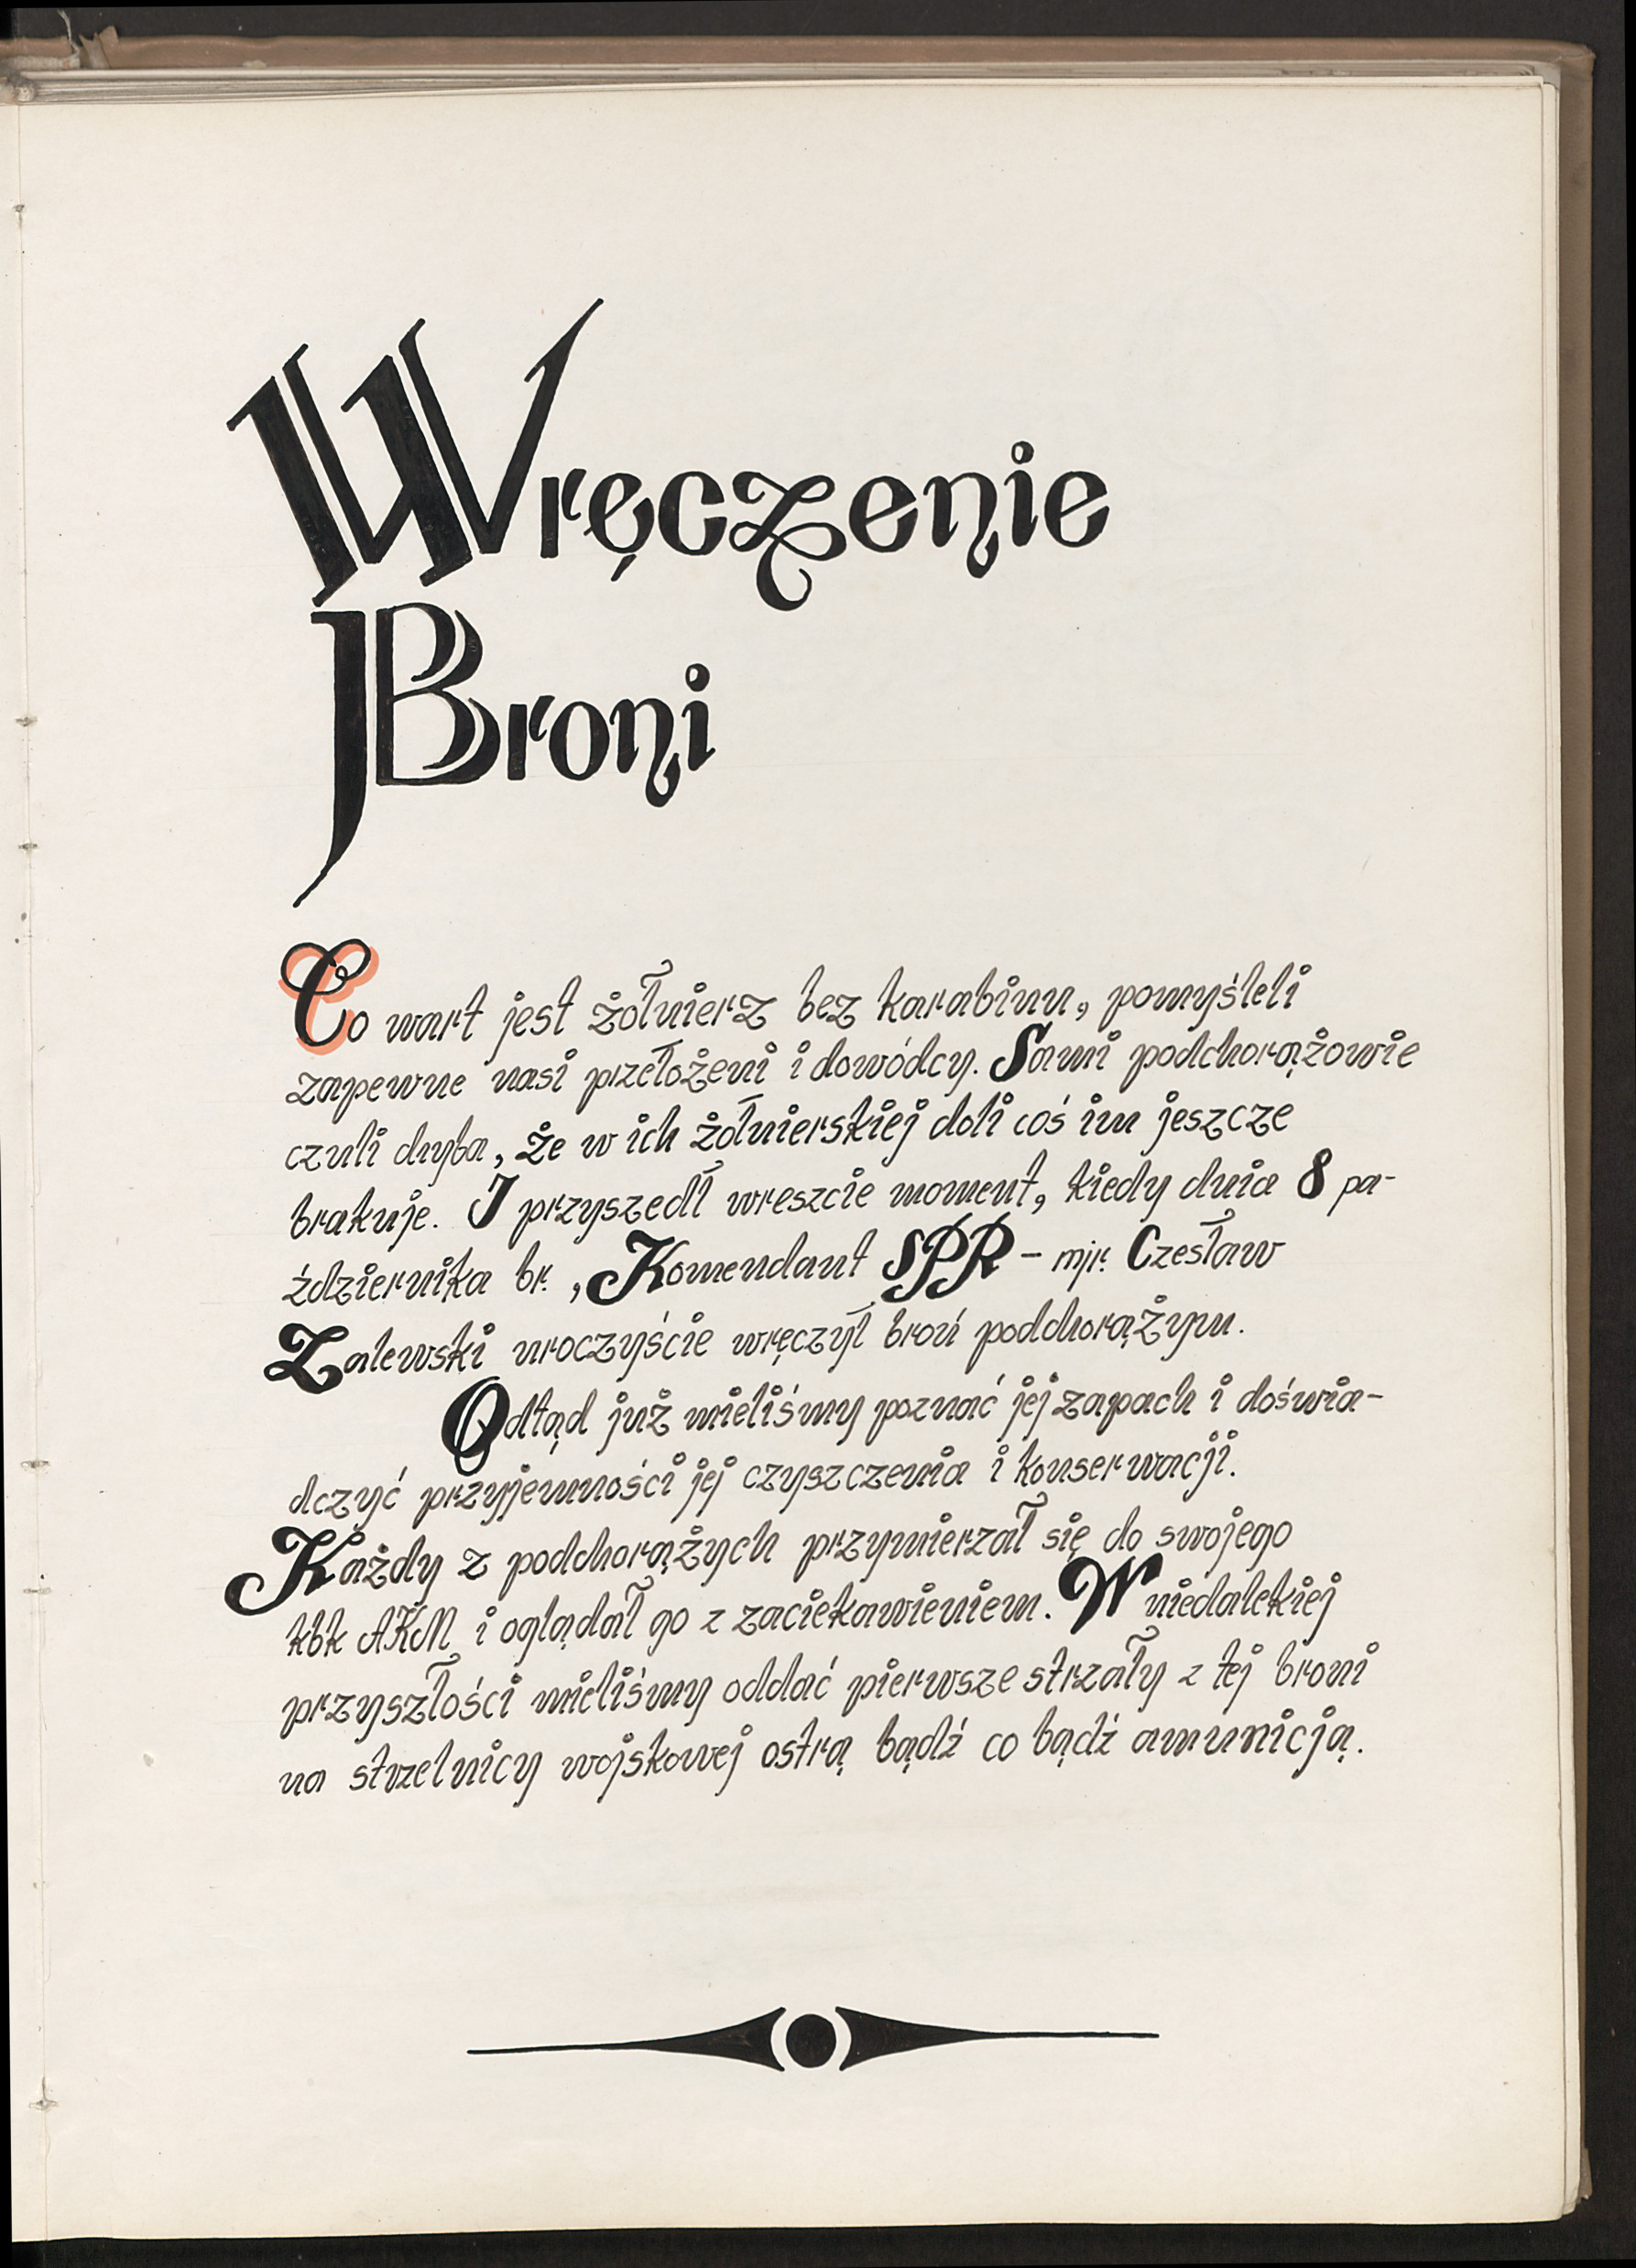 Wręczenie
Broni
Co wart jest żołnierz bez karabinu, pomyśleli
zapewne nasi przełożeni i dowódcy. Sami podchorążowie
czuli chyba, że w ich żołnierskiej doli coś im jeszcze
brakuje. I przyszedł wreszcie moment, kiedy dnia 8 pa-
ździernika br., Komendant SPR - mjr. Czesław
Zalewski uroczyście wręczył broń podchorążym.
Odtąd już mieliśmy poznać jej zapach i doświa-
dczyć przyjemności jej czyszczenia i konserwacji.
Każdy z podchorążych przymierzał się do swojego
kbk AKM i oglądał go z zaciekawieniem. W niedalekiej
przyszłości mieliśmy oddać pierwsze strzały z tej broni
na strzelnicy wojskowej ostrą bądź co bądź amunicją.